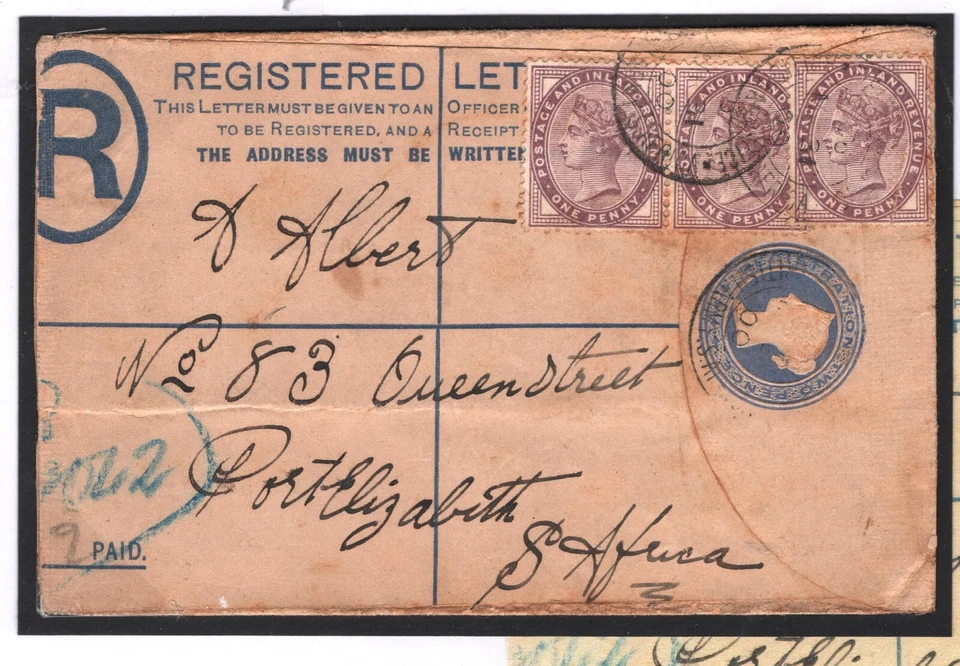 R
REGISTERED LET
THIS LETTER MUST BE GIVEN TO AN OFFICER
TO BE REGISTERED, AND A RECEIPT
THE ADDRESS MUST BE WRITTEN
POSTAGE AND INLAND REVENUE
ONE PENNY
POSTAGE AND INLAND
ONE PENNY
POSTAGE AND INLAND REVENUE
ONE PENNY
A Albert
REGISTRATION TWO PENCE
No 83 Queenstreet
Port Elizabeth
S Africa
PAID.